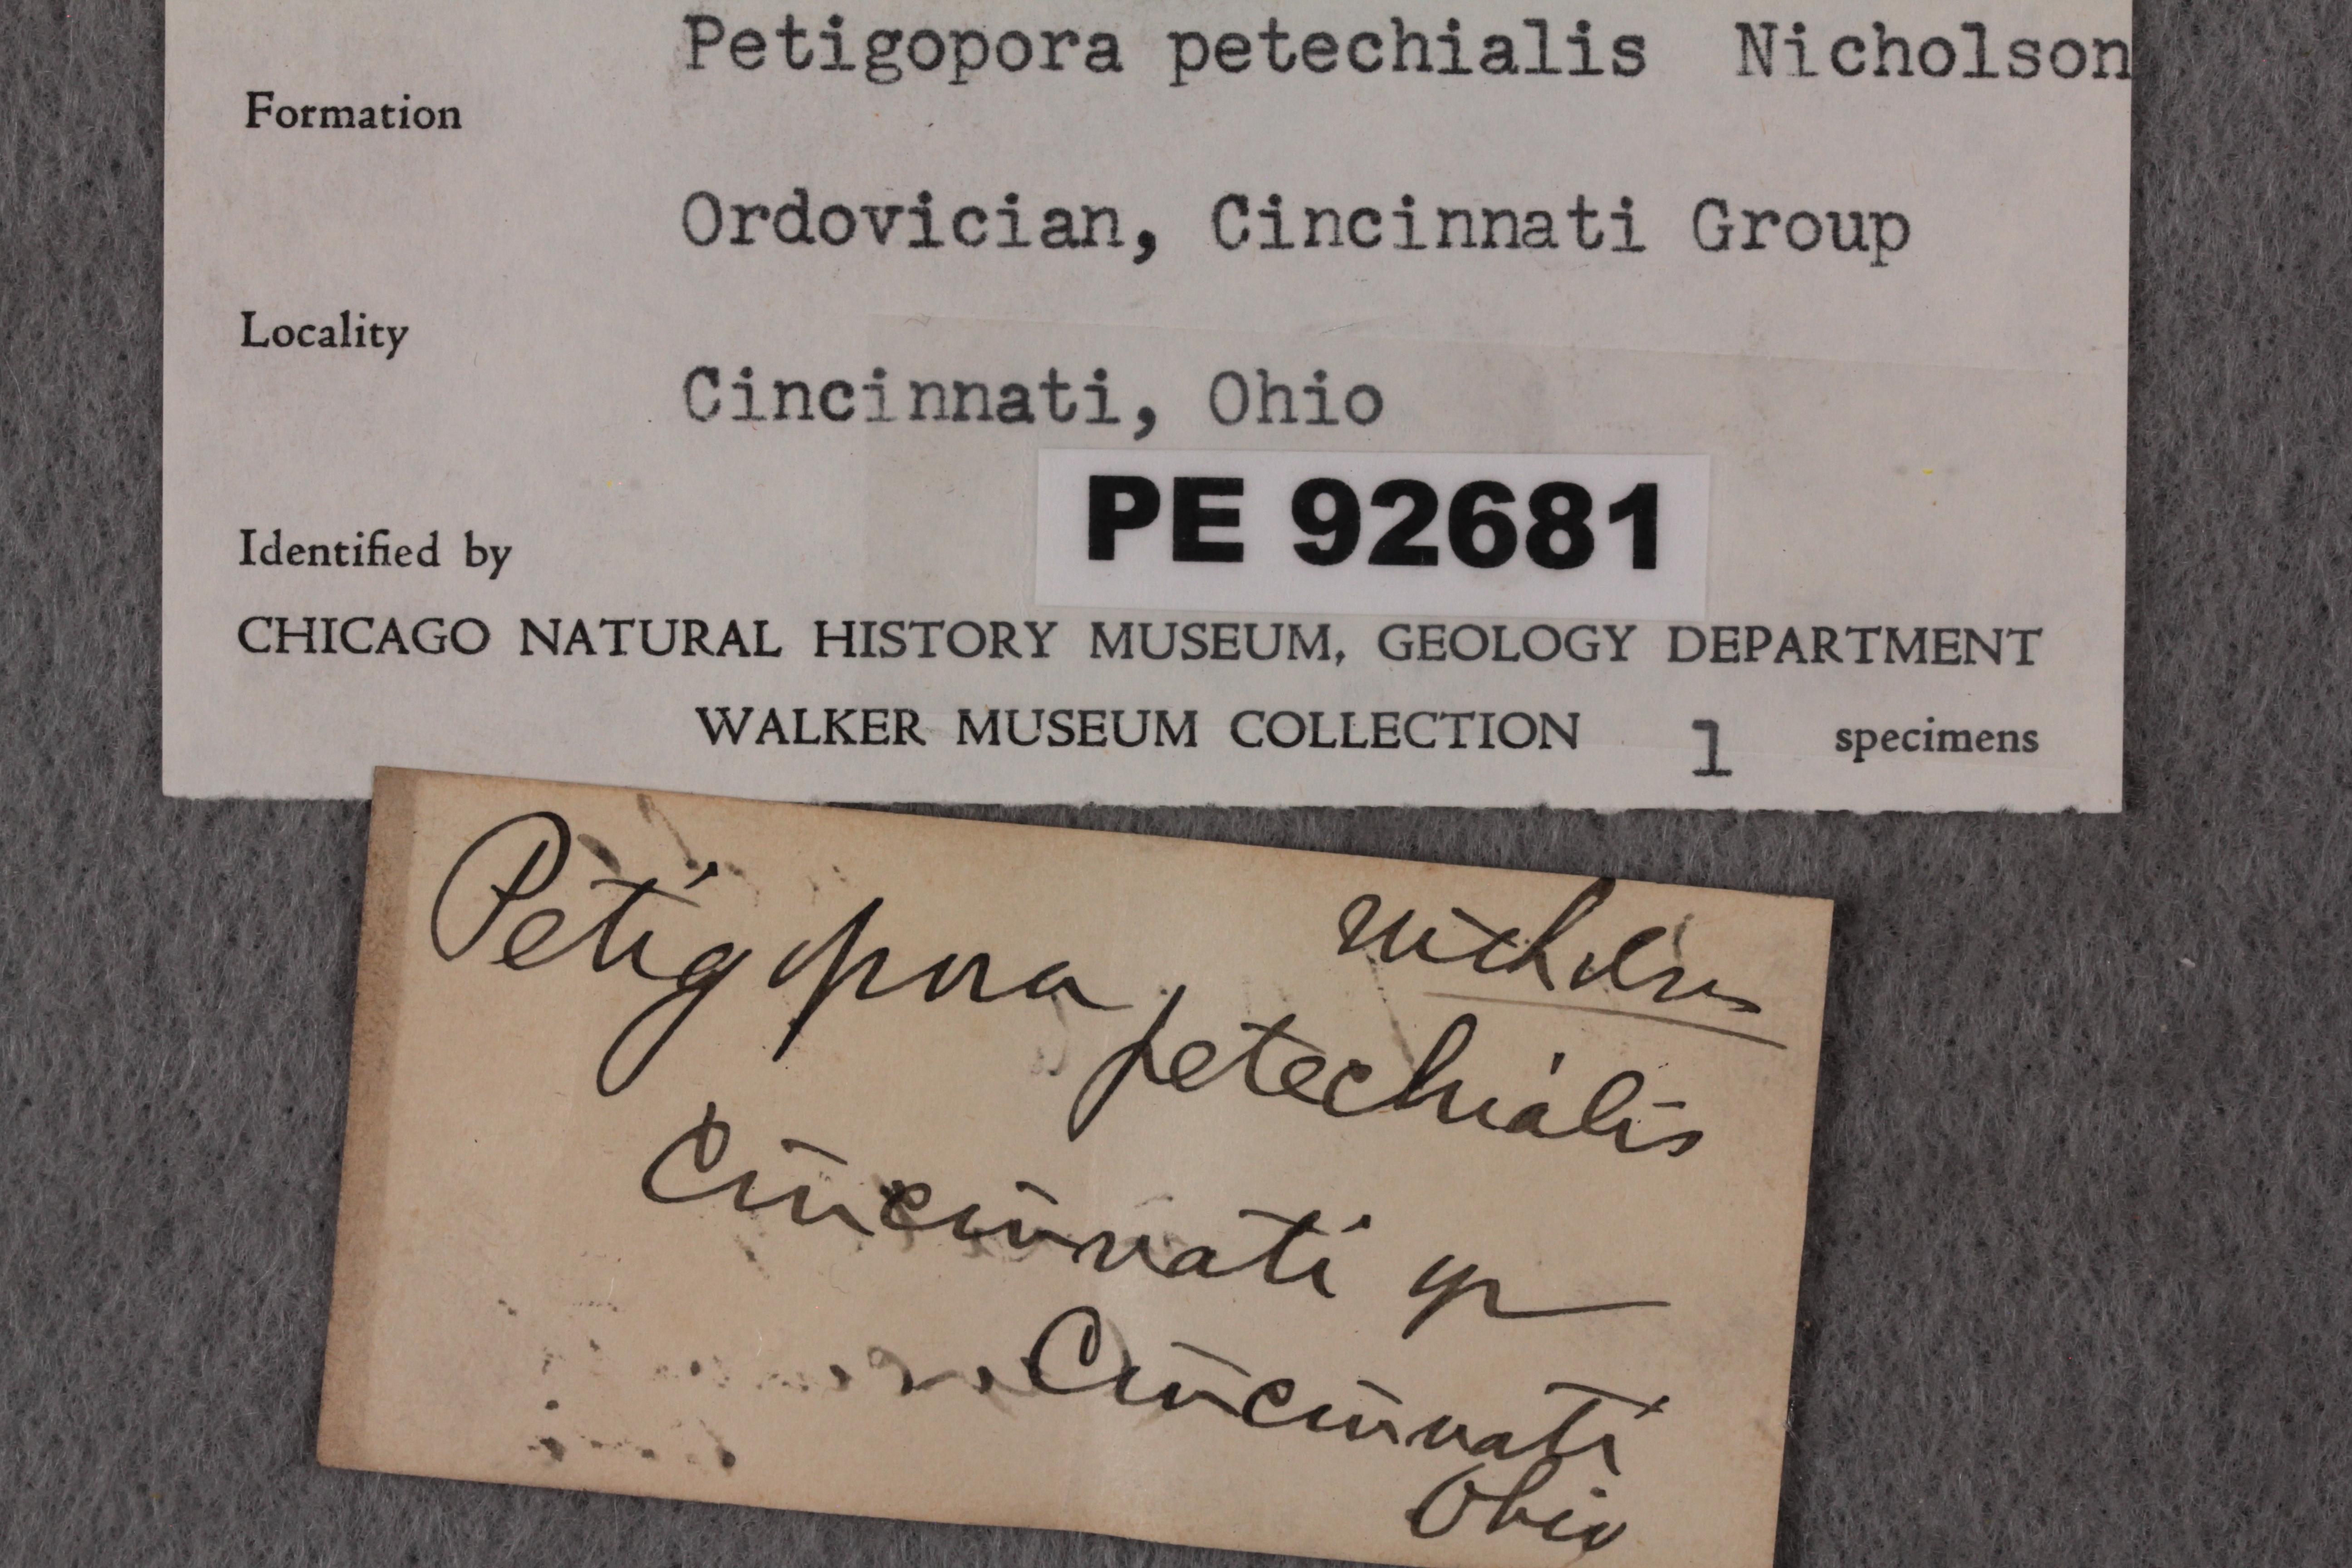 Petigopora petechialis Nicholson
Formation
Ordovician, Cincinnati Group
Locality
Cincinnati, Ohio
PE 92681
Identified by
CHICAGO NATURAL HISTORY MUSEUM, GEOLOGY DEPARTMENT
WALKER MUSEUM COLLECTION 1 specimens
Petigopora
petechialis
Cincinnati gr
Cincinnati
Ohio